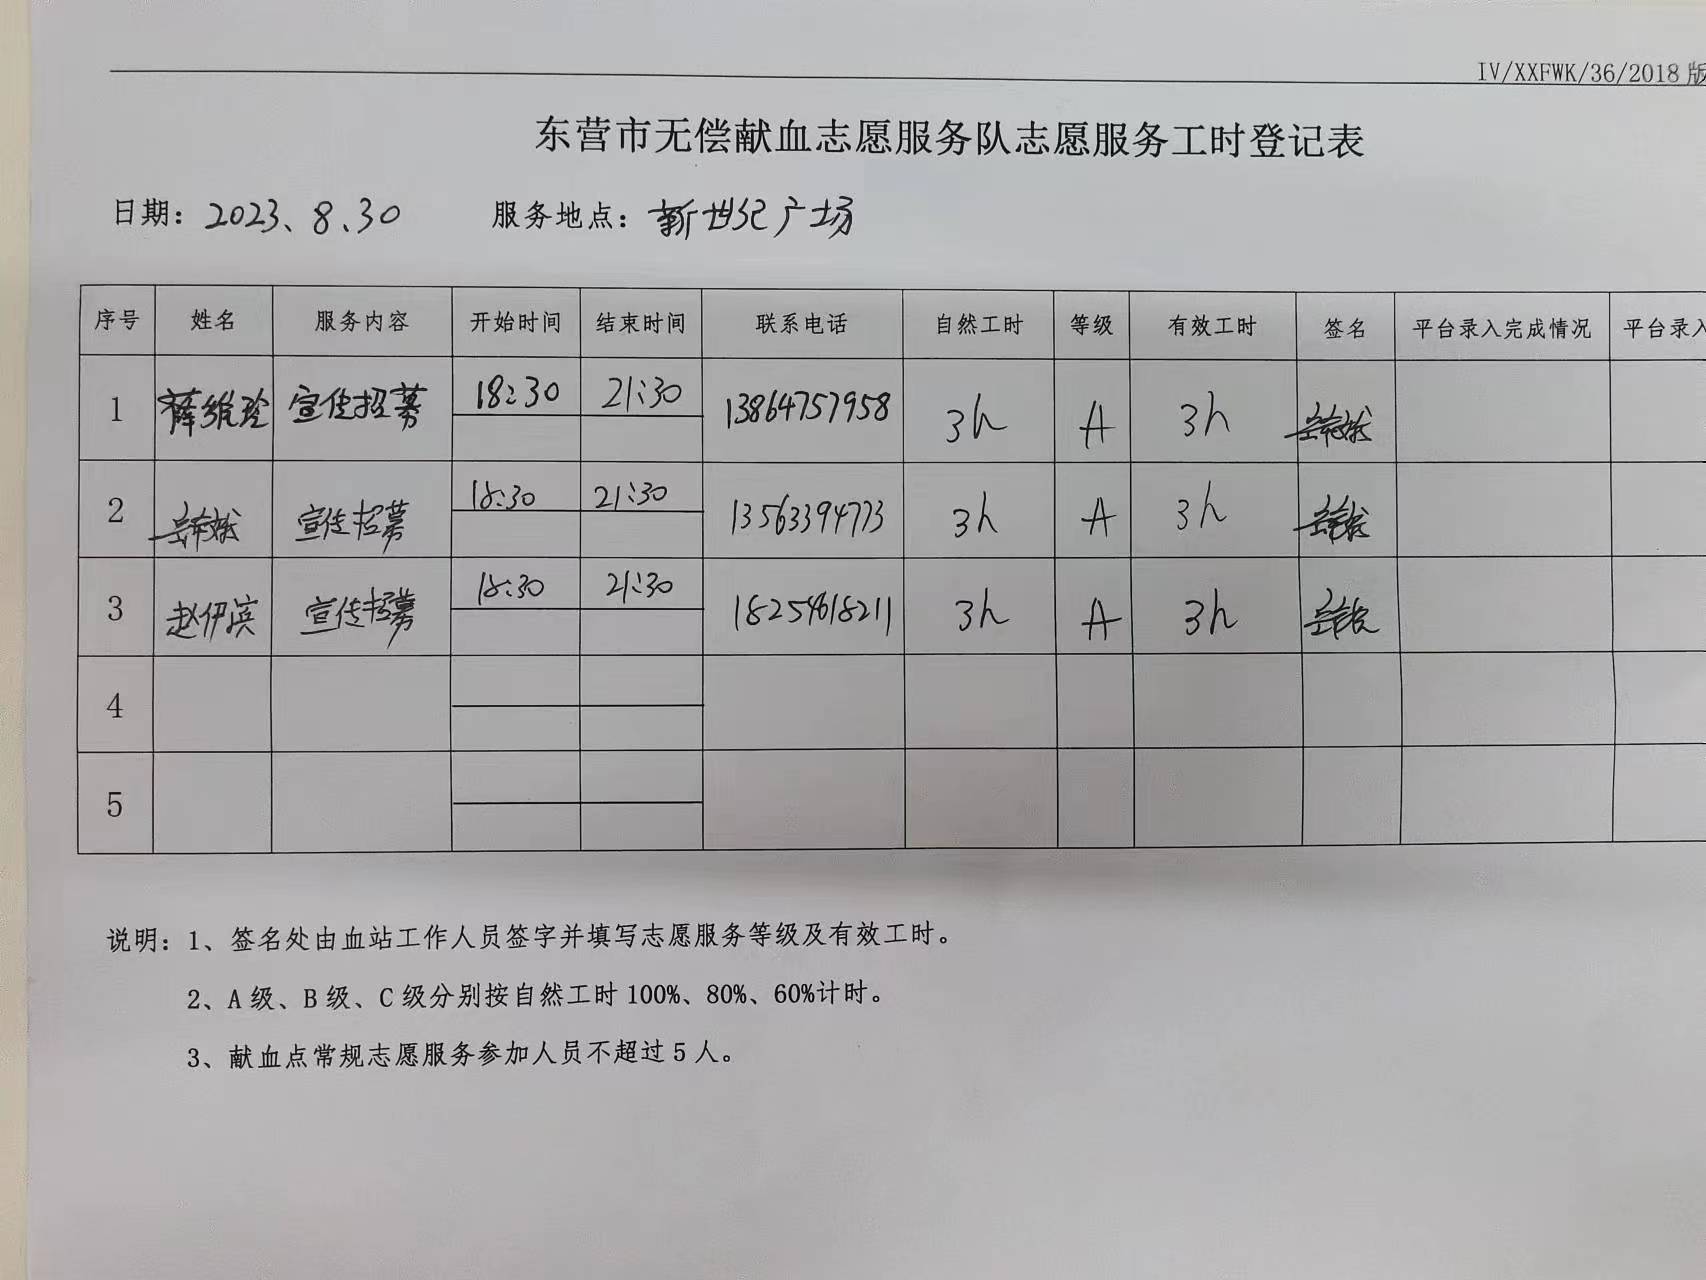 IV/XXFWK/36/2018 版
东营市无偿献血志愿服务队志愿服务工时登记表
日期: 2023、8、30 服务地点: 新世纪广场
序号 姓名 服务内容 开始时间 结束时间 联系电话 自然工时 等级 有效工时 签名 平台录入完成情况 平台录入
1 薛维玲 宣传招募 18:30 21:30 13864757958 3h A 3h
2 宣传招募 18:30 21:30 13563394773 3h A 3h
3 赵伊滨 宣传招募 18:30 21:30 18254618211 3h A 3h
4
5
说明: 1、签名处由血站工作人员签字并填写志愿服务等级及有效工时。
2、A 级、B 级、C 级分别按自然工时 100%、80%、60%计时。
3、献血点常规志愿服务参加人员不超过 5 人。